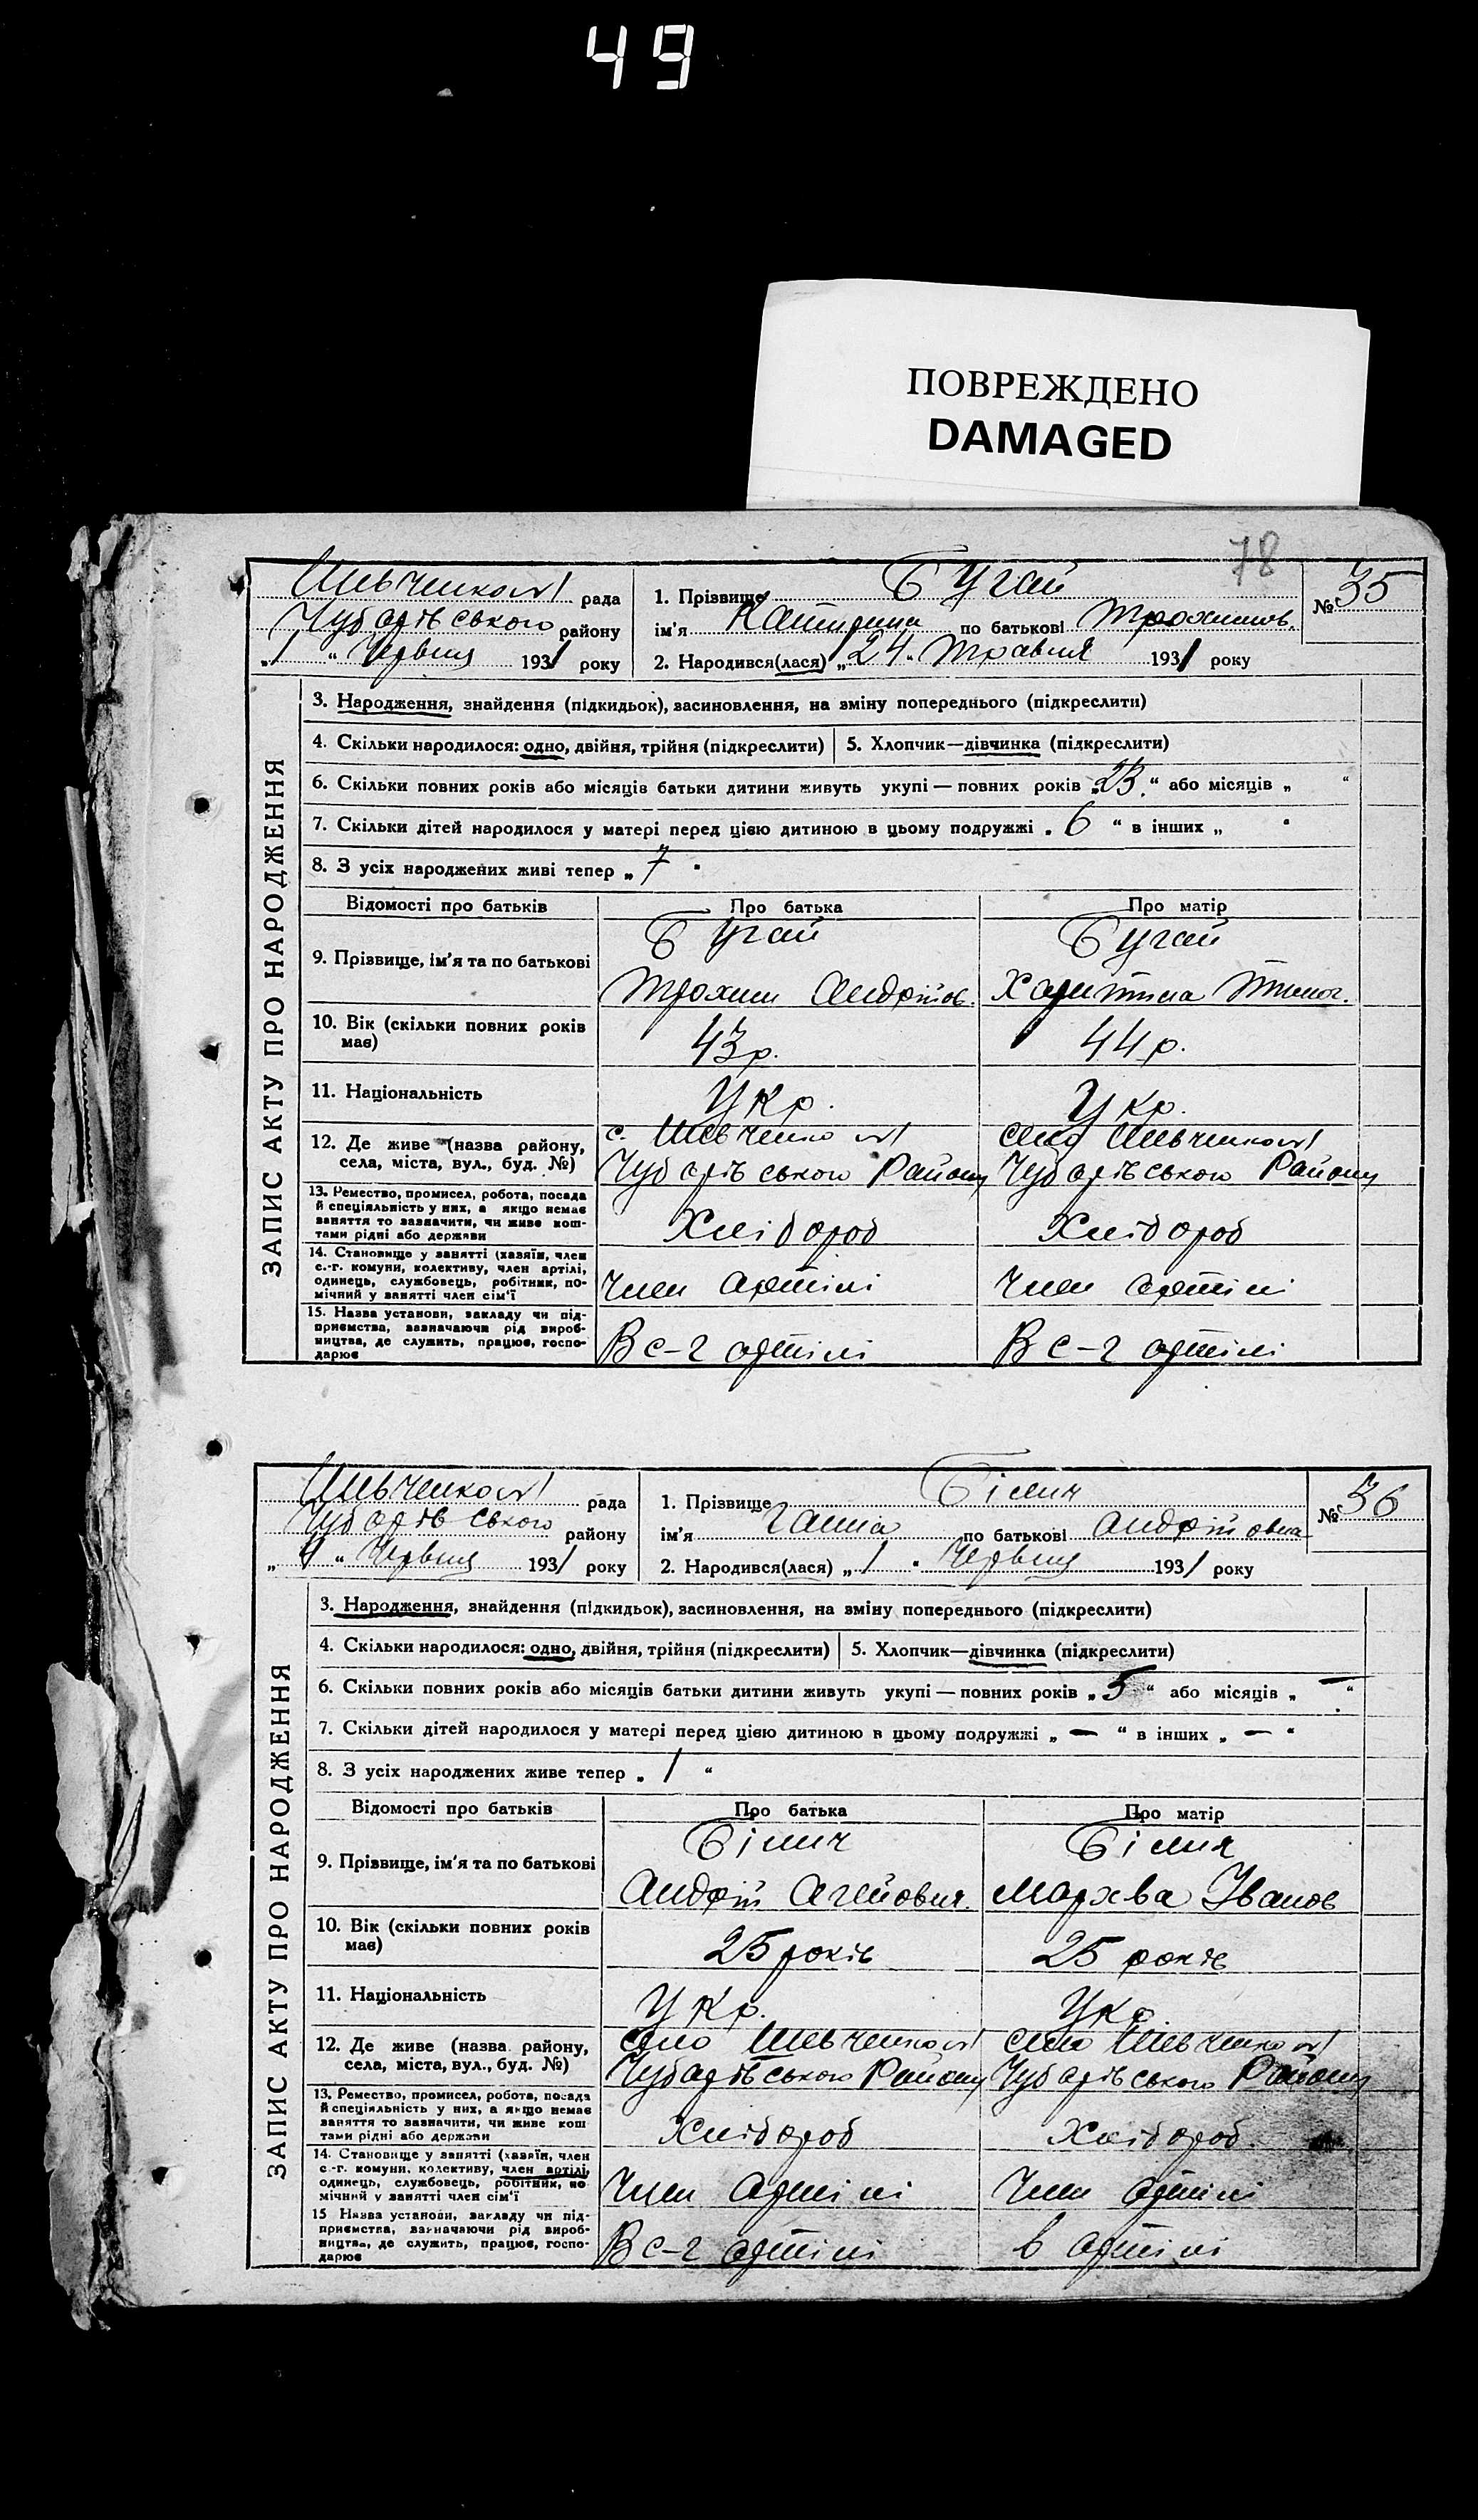 49
ПОВРЕЖДЕНО
DAMAGED
78
Шевченково рада
Чубарівського району
„1“ Червня 1931 року
1. Прізвище Бугай
ім'я Катирина по батькові Трохимов.
2. Народився(лася) „24“ Травня 1931 року
№ 35
ЗАПИС АКТУ ПРО НАРОДЖЕННЯ
3. Народження, знайдення (підкидьок), засиновлення, на зміну попереднього (підкреслити)
4. Скільки народилося: одно, двійня, трійня (підкреслити) 5. Хлопчик—дівчинка (підкреслити)
6. Скільки повних років або місяців батьки дитини живуть укупі — повних років „23“ або місяців „ “
7. Скільки дітей народилося у матері перед цією дитиною в цьому подружжі „6“ в інших „ “
8. З усіх народжених живі тепер „7“
Відомості про батьків Про батька Про матір
9. Прізвище, ім'я та по батькові
Бугай Бугай
Трохим Андрійов. Харитина
10. Вік (скільки повних років має) 43 р. 44 р.
11. Національність Укр. Укр.
12. Де живе (назва району, села, міста, вул., буд. №)
с. Шевченково село Шевченково
Чубарівського Району Чубарівського Району
13. Ремество, промисел, робота, посада
й спеціяльність у них, а якщо немає
заняття то зазначити, чи живе кош-
тами рідні або держави
Хлібороб Хлібороб
14. Становище у занятті (хазяїн, член
с.-г. комуни, колективу, член артілі,
одинець, службовець, робітник, по-
мічний у занятті член сім'ї
Член артілі Член артілі
15. Назва установи, закладу чи під-
приємства, зазначаючи рід вироб-
ництва, де служить, працює, госпо-
дарює
В с-г артілі В с-г артілі
Шевченково рада
Чубарівського району
„4“ Червня 1931 року
1. Прізвище Білич
ім'я Ганна по батькові Андрійовна
2. Народився(лася) „1“ Червня 1931 року
№ 36
ЗАПИС АКТУ ПРО НАРОДЖЕННЯ
3. Народження, знайдення (підкидьок), засиновлення, на зміну попереднього (підкреслити)
4. Скільки народилося: одно, двійня, трійня (підкреслити) 5. Хлопчик—дівчинка (підкреслити)
6. Скільки повних років або місяців батьки дитини живуть укупі — повних років „5“ або місяців „—“
7. Скільки дітей народилося у матері перед цією дитиною в цьому подружжі „—“ в інших „—“
8. З усіх народжених живе тепер „1“
Відомості про батьків Про батька Про матір
9. Прізвище, ім'я та по батькові
Білич Білич
Андрій Агейович. Мархва Іванов
10. Вік (скільки повних років має) 25 років 25 років
11. Національність Укр. Укр.
12. Де живе (назва району, села, міста, вул., буд. №)
село Шевченково село Шевченково
Чубарівського Району Чубарівського Району
13. Ремество, промисел, робота, посада
й спеціяльність у них, а якщо немає
заняття то зазначити, чи живе кош
тами рідні або держави
Хлібороб Хлібороб.
14. Становище у занятті (хазяїн, член
с.-г. комуни, колективу, член артілі,
одинець, службовець, робітник, по
мічний у занятті член сім'ї
Член артілі Член артілі
15 Назва установи, закладу чи під-
приємства, зазначаючи рід вироб-
ництва, де служить, працює, госпо-
дарює
В с-г артілі в артілі